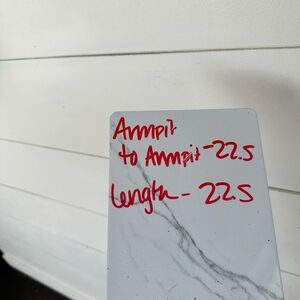 Armpit
to Armpit - 22.5
Length - 22.5